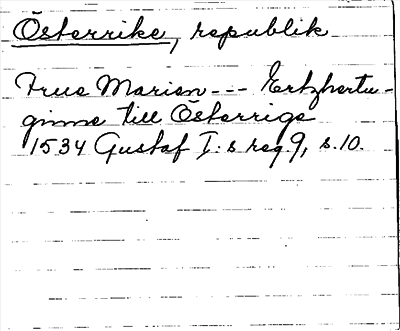 Österrike, republik
Frue Marien --- Ertzhertu-
ginne till Österrige
1534 Gustaf I:s reg. 9, s. 10.